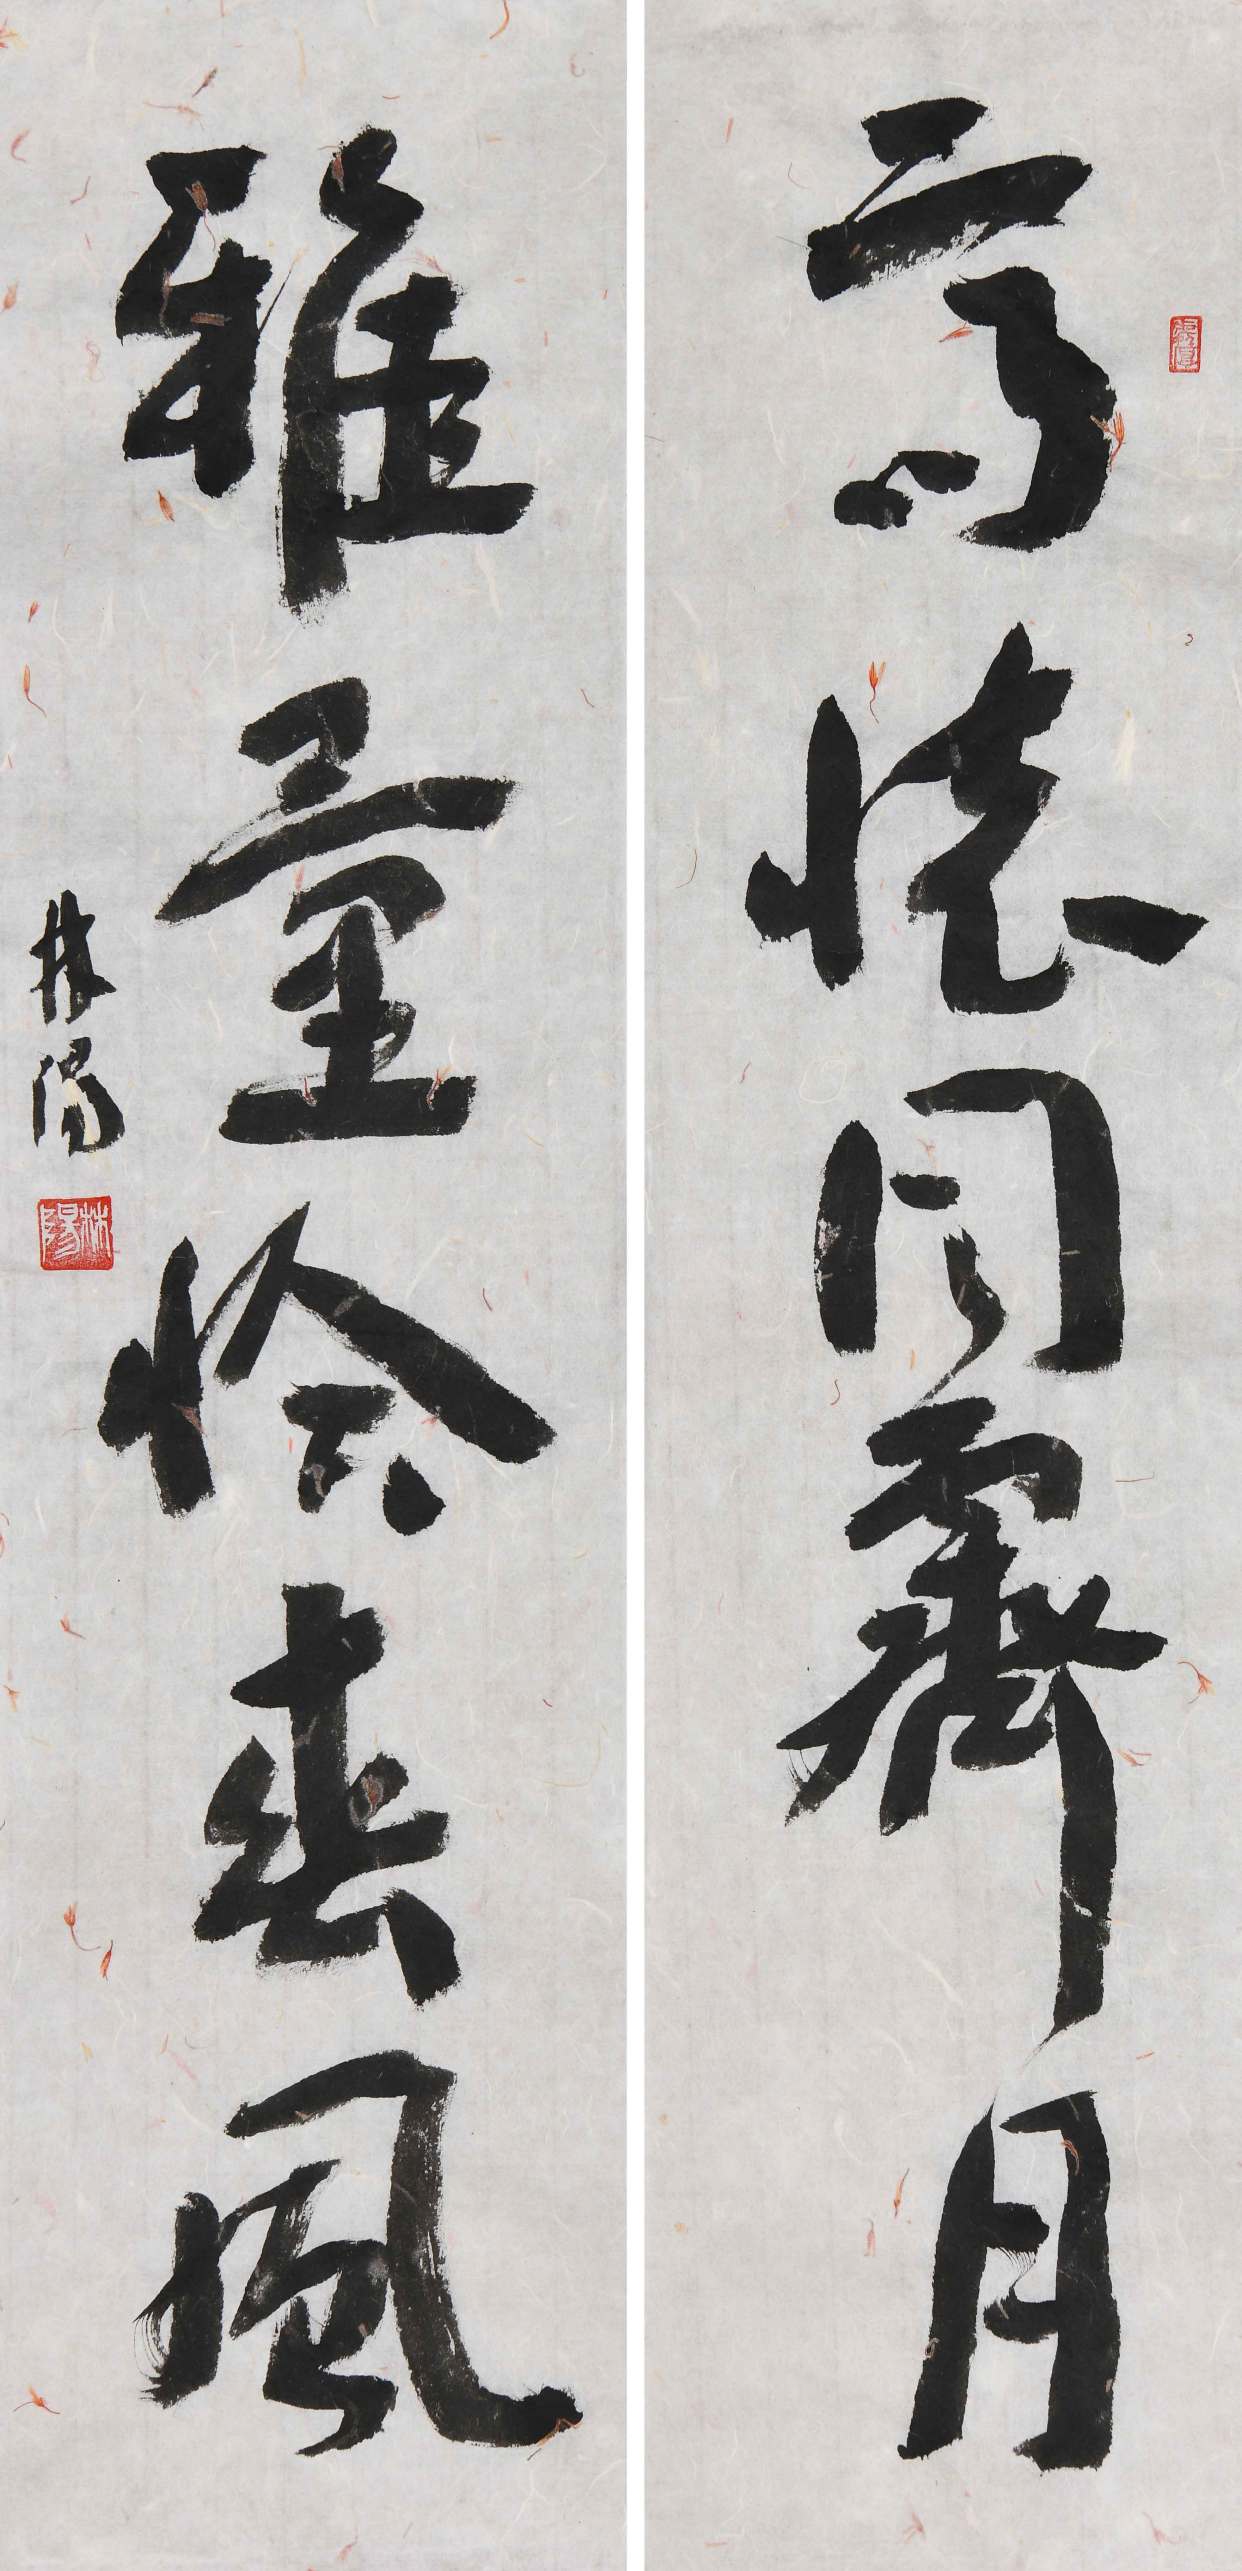 高懷同霽月
雅量恰春風
林陽
林陽